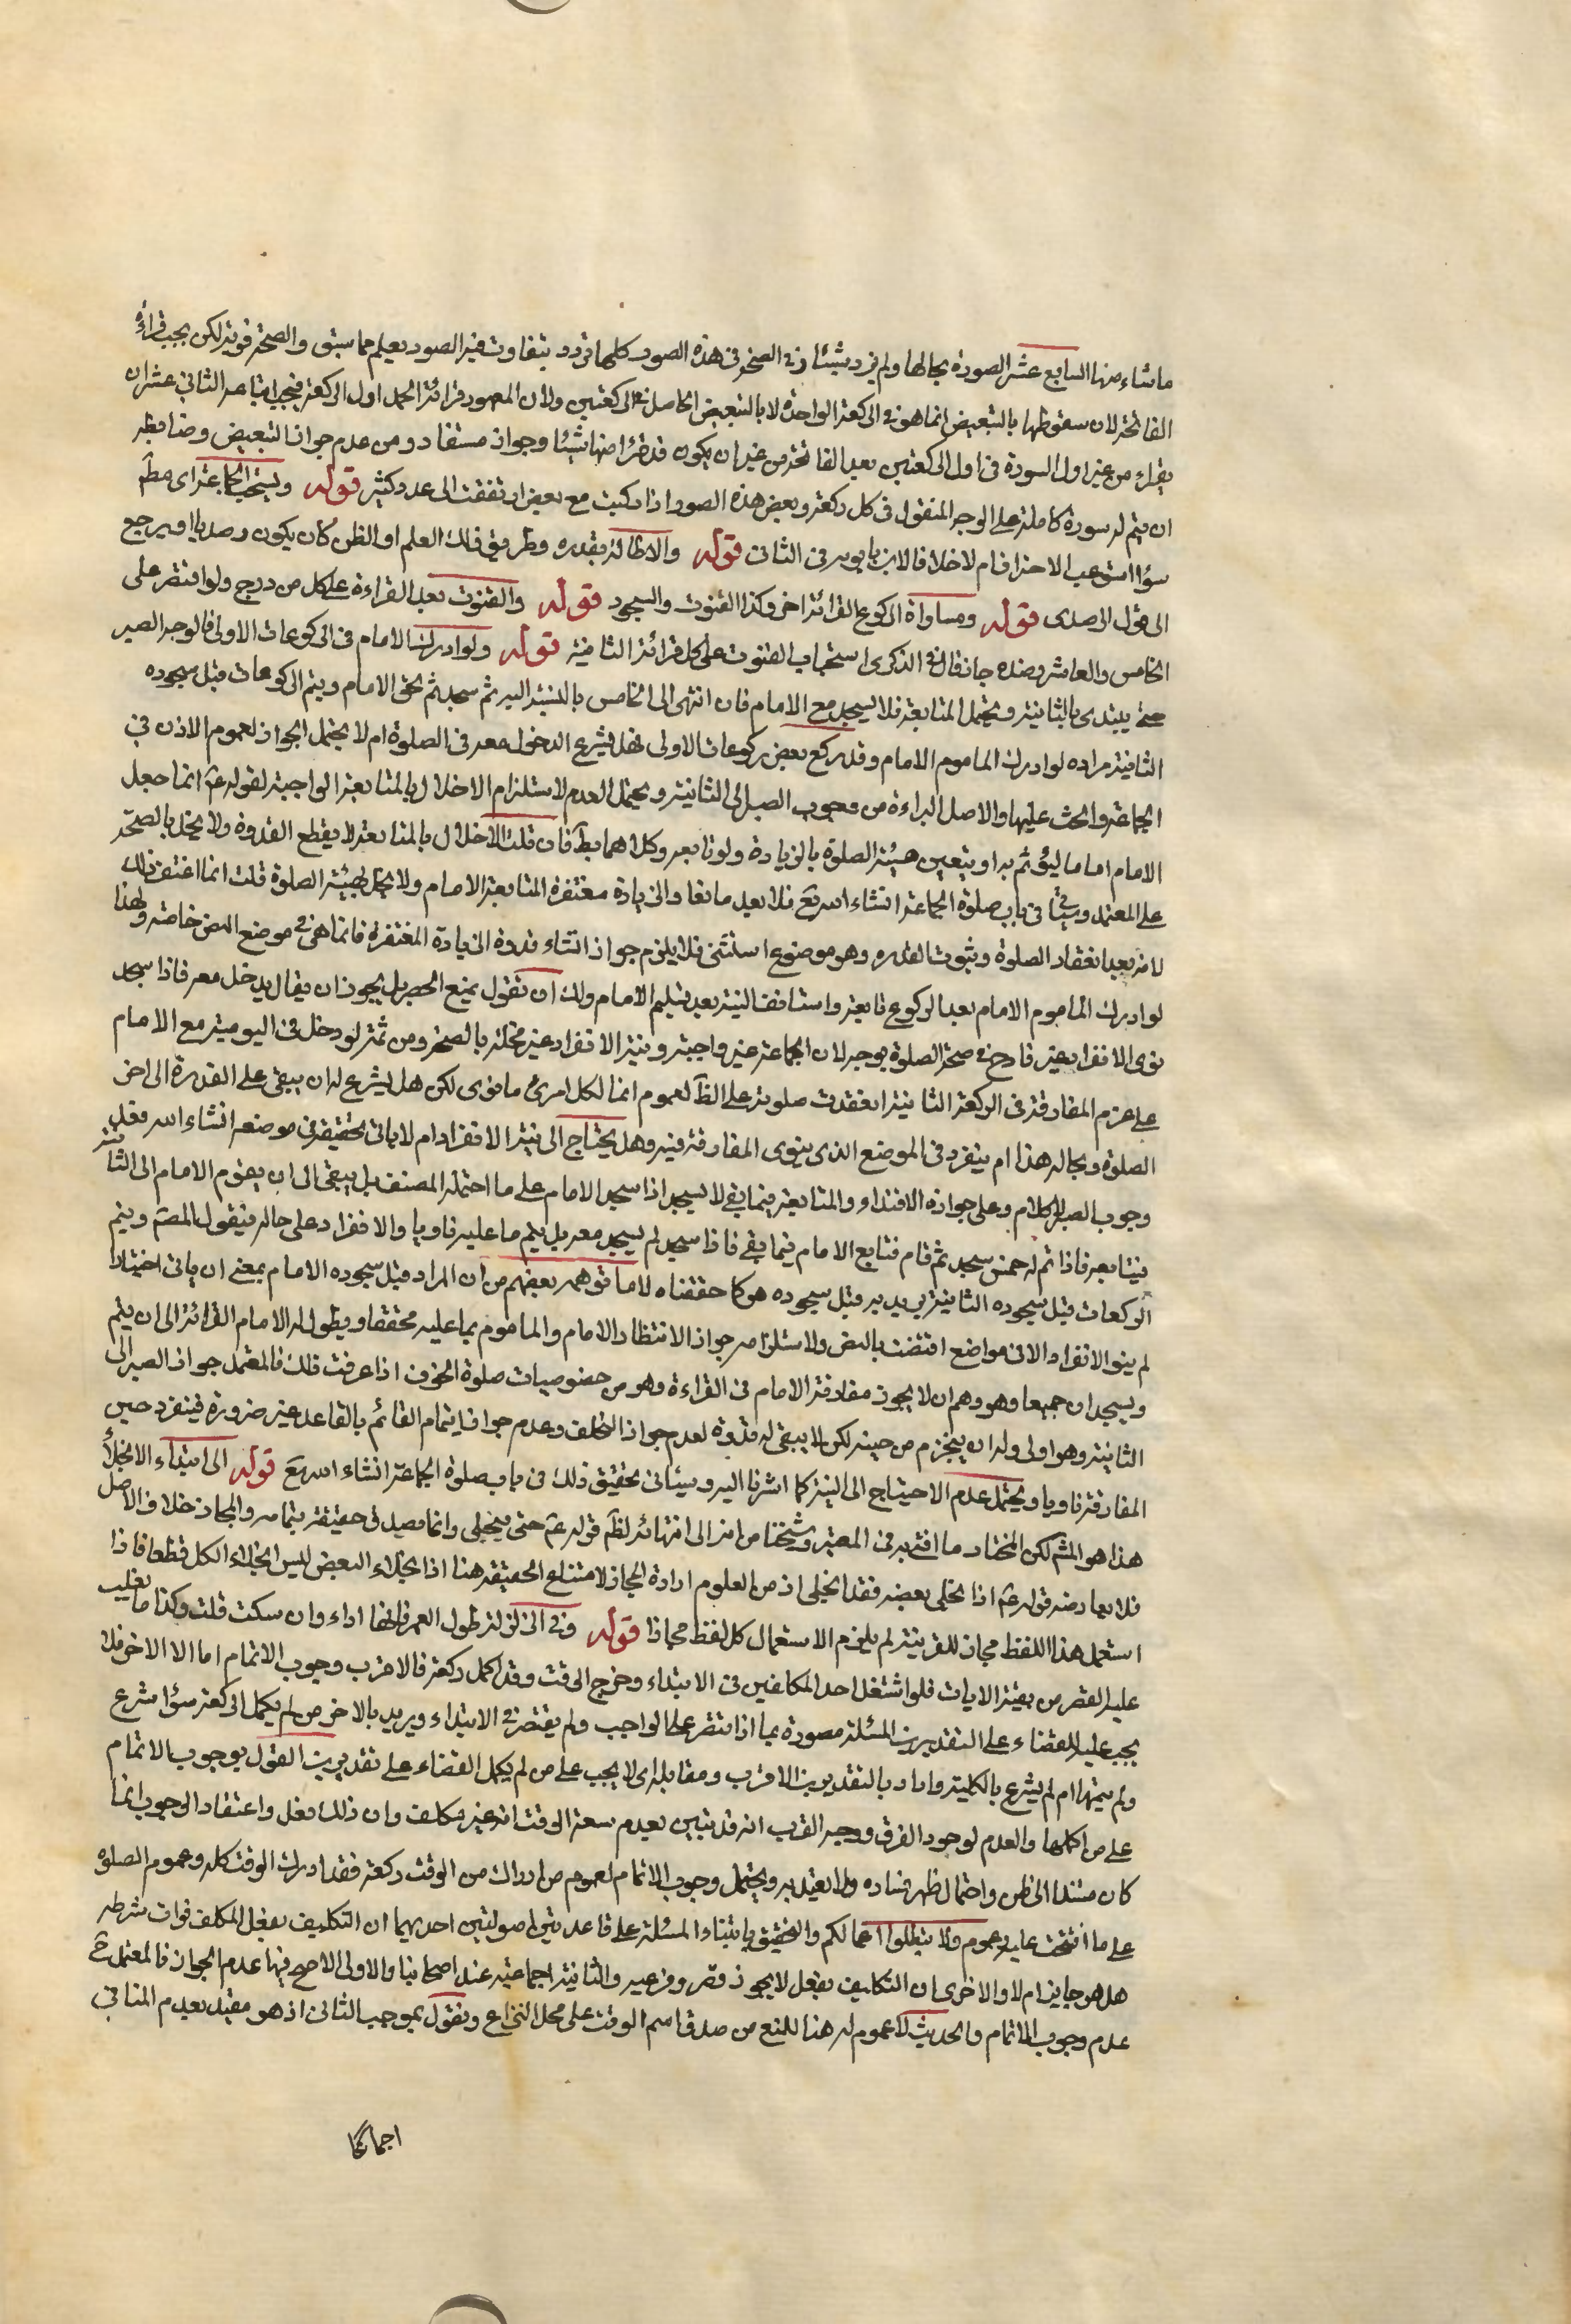 ماشاء منها السابع عشر الصورة بحالها ولم يزد شيئا ففي الصحة في هذه الصور كلها تردد يتفاوت فيه الصور يعلم مما سبق والصحة قوية لكن يجب قراءة
الفاتحة لان سقوطها بالتبعيض انما هو في الركعة الواحدة لا بالتبعيض الحاصل في الركعتين ولان المعهود قراءة الحمد اول الركعة فيجب اتباعه الثاني عشر ان
يقرء من غير اول السورة في اول الركعتين بعد الفاتحة من غير ان يكون قد قرء منها شيئا وجوازه مستفاد ومن عدم جواز التبعيض وضابطه
ان يتم له سورة كاملة على الوجه المنقول في كل ركعة وبعض هذه الصور اذا ركبت مع بعض ارتقت الى عدد كثير قوله ويستحب الجماعة اي مطلقا
سواء استوعب الاحتراق ام لا خلافا لابن بابويه في الثاني قوله والاطالة بقدره وطريق ذلك العلم او الظن كان يكون رصديا او يرجع
الى قول الرصدي قوله ومساواة الركوع القرائة اخر وكذا القنوت والسجود قوله والقنوت بعد القراءة على كل مزدوج ولو اقتصر على
الخامس والعاشر وضده جاز قال في الذكرى استحباب القنوت على كل قرائة الثانية قوله ولو ادرك الامام في الركوعات الاولى فالوجه الصبر
حتى يبتدى بالثانية ويحتمل المتابعة فلا يسجد مع الامام فان انتهى الى الخامس بالنسبة اليه ثم سجد ثم لحق الامام ويتم الركوعات قبل سجوده
الثانية مراده لو ادرك الماموم الامام وقد ركع بعض ركوعات الاولى فهل يشرع الدخول معه في الصلوة ام لا يحتمل الجواز لعموم الاذن في
الجماعة والحث عليها والاصل البراءة من وجوب الصبر الى الثانية ويحتمل العدم لاستلزام الاخلال بالمتابعة الواجبة لقوله ع انما جعل
الامام اماما ليؤتم به او يتعين هيئة الصلوة بالزيادة ولو تابعه وكلاهما بط فان قلت الاخلال بالمتابعة لا يقطع القدوة ولا يخل بالصحة
على المعتمد وسيأتي في باب صلوة الجماعة انشاء الله تع فلا يعد مانعا والزيادة مغتفرة لمتابعة الامام ولا يخل بهيئة الصلوة قلت انما اغتفر ذلك
لانه بعد انعقاد الصلوة وثبوت القدوه وهو موضوع استثنى فلا يلزم جواز انشاء قدوة الزيادة المغتفرة فانما هي في موضع النص خاصة ولهذا
لو ادرك الماموم الامام بعد الركوع تابعه واستانف النية بعد تسليم الامام ولك ان تقول بمنع الحصر بل يجوز ان يقال يدخل معه فاذا سجد
نوى الانفراد غير قادح في صحة الصلوة بوجه لان الجماعة غير واجبة ونية الانفراد غير مخلة بالصحة ومن ثمة لو دخل في اليومية مع الامام
على عزم المفارقة في الركعة الثانية انعقدت صلوته على الظ لعموم انما لكل امرئ ما نوى لكن هل يشرع له ان يبقى على القدوة الى اخر
الصلوة وبحاله هذا ام ينفرد في الموضع الذى ينوى المفارقة فيه وهل يحتاج الى نية الانفراد ام لا ياتى تحقيقه في موضعه انشاء الله فعلى
وجوب الصبر الكلام وعلى جوازه الاقتداء والمتابعة فيما بقى لا يسجد اذا سجد الامام على ما احتمله المصنف بل يبقى الى ان يقوم الامام الى الثانية
فيتابعه فاذا تم له خمس سجد ثم قام فتابع الامام فيما بقى فاذا سجد لم يسجد معه بل يتم ما عليه ناويا والانفراد على حاله فيقول المصنف ويتم
الركعات قبل سجوده الثانية يريد به قبل سجوده هو كما حققناه لا ما توهمه بعضهم من ان المراد قبل سجوده الامام بمعنى ان ياتى اختيارا
لم ينو الانفراد الا في مواضع اقتضت بالنص ولاستلزامه جواز الانتظار الامام والماموم بما عليه محققا ويطول له الامام القرائة الى ان يتم
ويسجدان جميعا وهو وهم ان لا يجوز مفارقة الامام في القراءة وهو من خصوصيات صلوة الخوف اذا عرفت ذلك فالمعتمد جواز الصبر الى
الثانية وهو اولى وله ان يتجزم من حينه لكن لا يبقى له قدوة لعدم جواز التخلف وعدم جواز ايتمام القائم بالقاعد غير ضرورة فينفرد حين
المفارقة ناويا ويحتمل عدم الاحتياج الى النية كما اشرنا اليه وسيأتى تحقيق ذلك في باب صلوة الجماعة انشاء الله تع قوله الى ابتداء الانجلاء
هذا هو المش لكن المختار ما افتى به في المعتبر وشيخنا من انه الى انتهائه لظ قوله ع حتى ينجلى وانما يصدق حقيقة بتمامه والمجاز خلاف الاصل
فلا يعارضه قوله ع اذا انجلى بعضه فقد انجلى اذ من المعلوم ارادة المجاز لامتناع الحقيقة هنا اذ انجلاء البعض ليس انجلاء الكل قطعا فاذا
استعمل هذا اللفظ مجازا للقرينة لم يلزم الاستعمال كل لفظ مجازا قوله وفي الزلزلة طول العمر فانها اداء وان سكت قلت وكذا ما يغلب
عليه القصر من بقية الايات فلو اشتغل احد المكلفين في الابتداء وخرج الوقت وقد اكمل ركعة فالاقرب وجوب الاتمام اما الاخر فلا
يجب عليه القضاء على التقديرين المسئلة مصورة بما اذا اقتصر على الواجب ولم يقتصر في الابتداء ويريد بالاخر من لم يكمل الركعة سواء شرع
ولم يتمها ام لم يشرع بالكلية واراد بالتقديرين الاقرب ومقابله اى لا يجب على من لم يكمل القضاء على تقديرين القول بوجوب الاتمام
على من اكملها والعدم لوجود الفرق ووجه القرب انه قد تبين بعدم سعة الوقت انه غير مكلف وان ذلك فعل واعتقاد الوجوب انما
كان مستندا الى ظن واحتمال ظهر فساده ولا يعتد به ويحتمل وجوب الاتمام لعموم من ادراك من الوقت ركعة فقد ادرك الوقت كله وعموم الصلوة
على ما افتتحت عليه وعموم ولا تبطلوا اعمالكم والتحقيق بابتناء المسئلة على قاعدتين اصوليتين احديهما ان التكليف بفعل المكلف فوات شرطه
هل هو جايز ام لا والاخرى ان التكليف بفعل لا يجوز قصر وفرعيه والثانية اجماعية عند اصحابنا والاولى الاصح فيها عدم الجواز فالمعتمد ح
عدم وجوب الاتمام والحديث لا عموم له هنا للمنع من صدق اسم الوقت على محل النزاع ونقول بموجب الثانى اذ هو مقيد بعدم المنافي
اجماعا